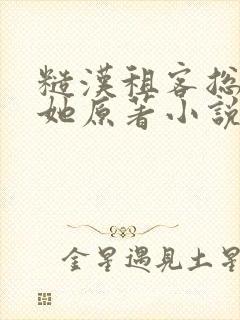 糙漢租客總
她原著小說
金星遇見土星